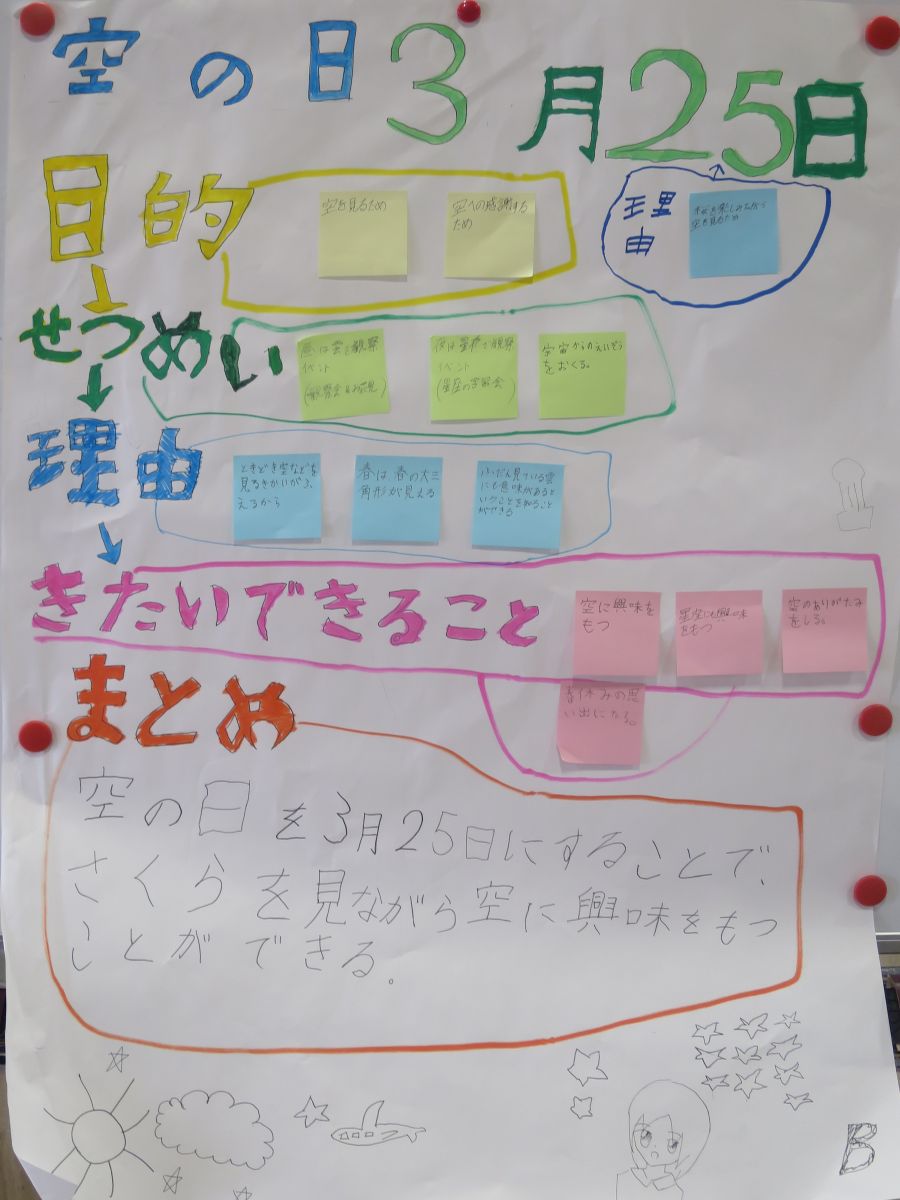 空の日 3月25日
目的
空を見るため
空への感謝する
ため
理
由
桜を楽しみながら
空を見るため
せつめい
昼は雲を観察
イベント
夜は星座を観察
イベント
(星座の学習会)
宇宙からのえいぞう
をおくる。
理由
ときどき空などを
見るきかいがふ
えるから
春は、春の大三
角形が見える
ふだん見ている雲
にも意味があると
いうことを知ること
ができる
きたいできること
空に興味を
もつ
星空にも興味
をもつ
空のありがたみ
をしる。
春休みの思
い出になる。
まとめ
空の日を3月25日にすることで、
さくらを見ながら空に興味をもつ
ことができる。
B